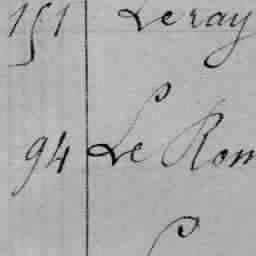 151 Leray
94 Le Rom